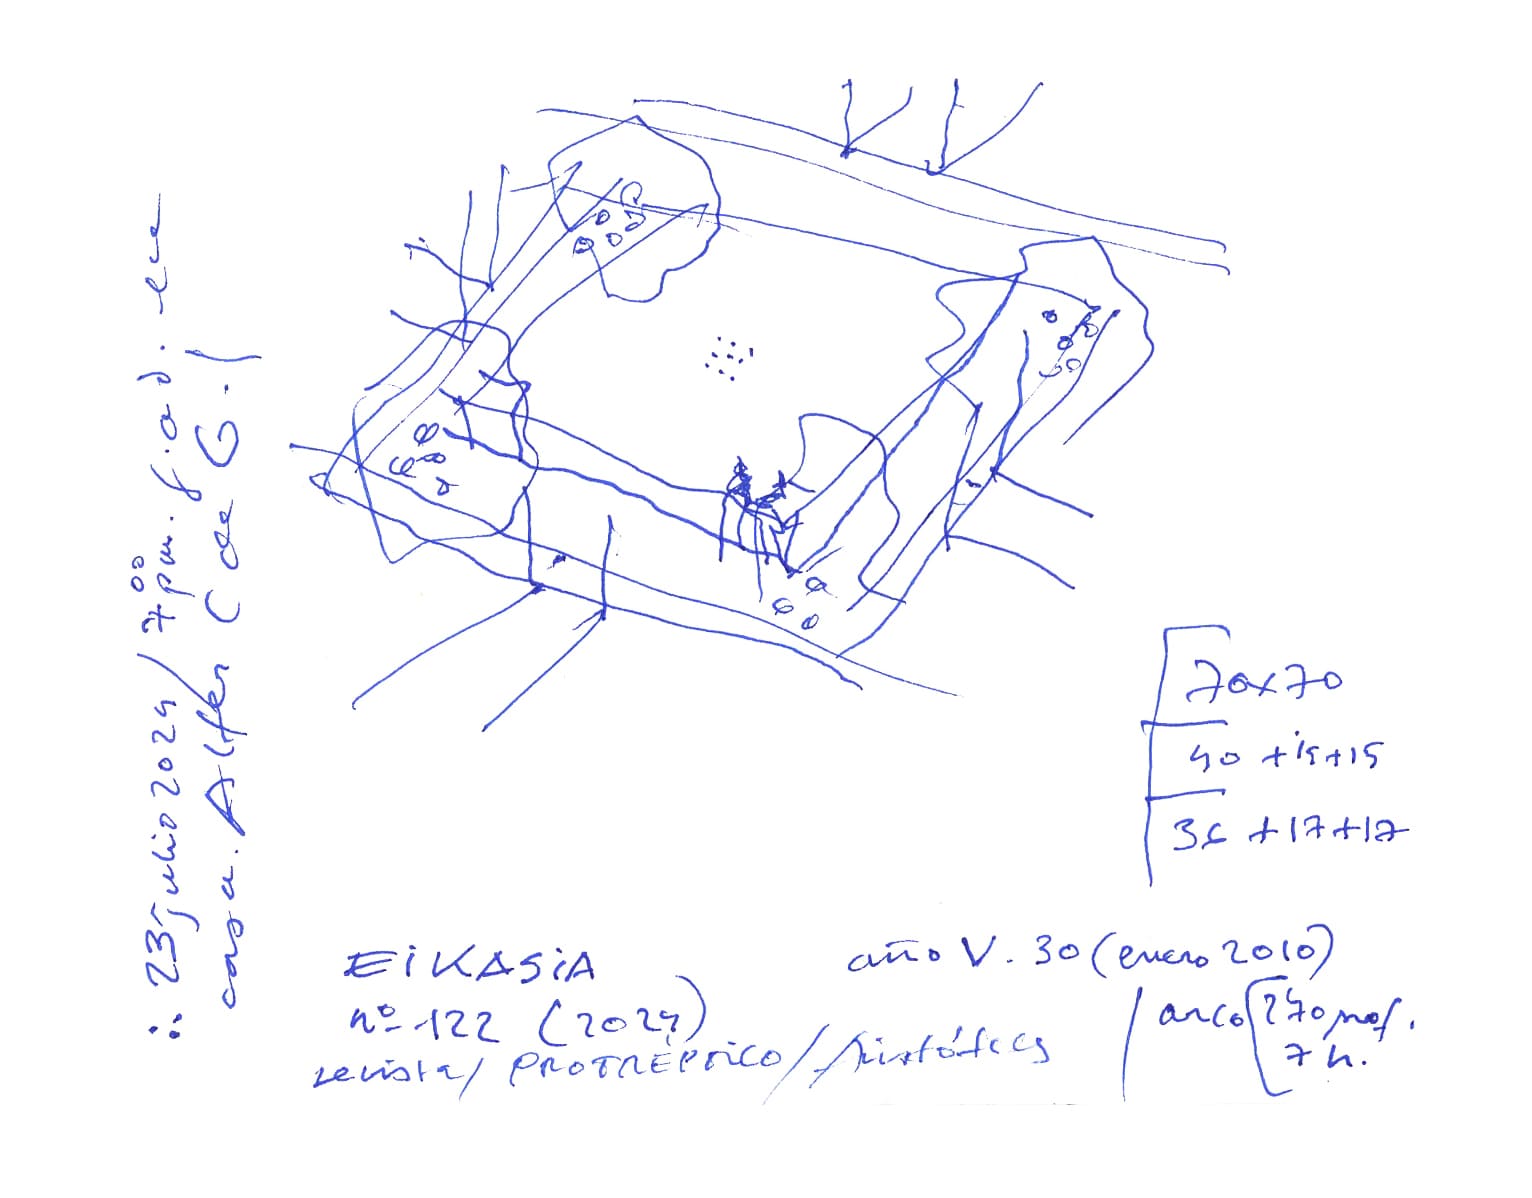 ∴ 23 julio 2024 / 7⁰⁰ pm.
casa. Alfer (de G.
70x70
40 +15+15
36 +17+17
EiKASiA
nº 122 (2024)
revista/ PROTRÉPTICO /
año V. 30 (enero 2010)
/ arco [ 270 prof.
7 h.